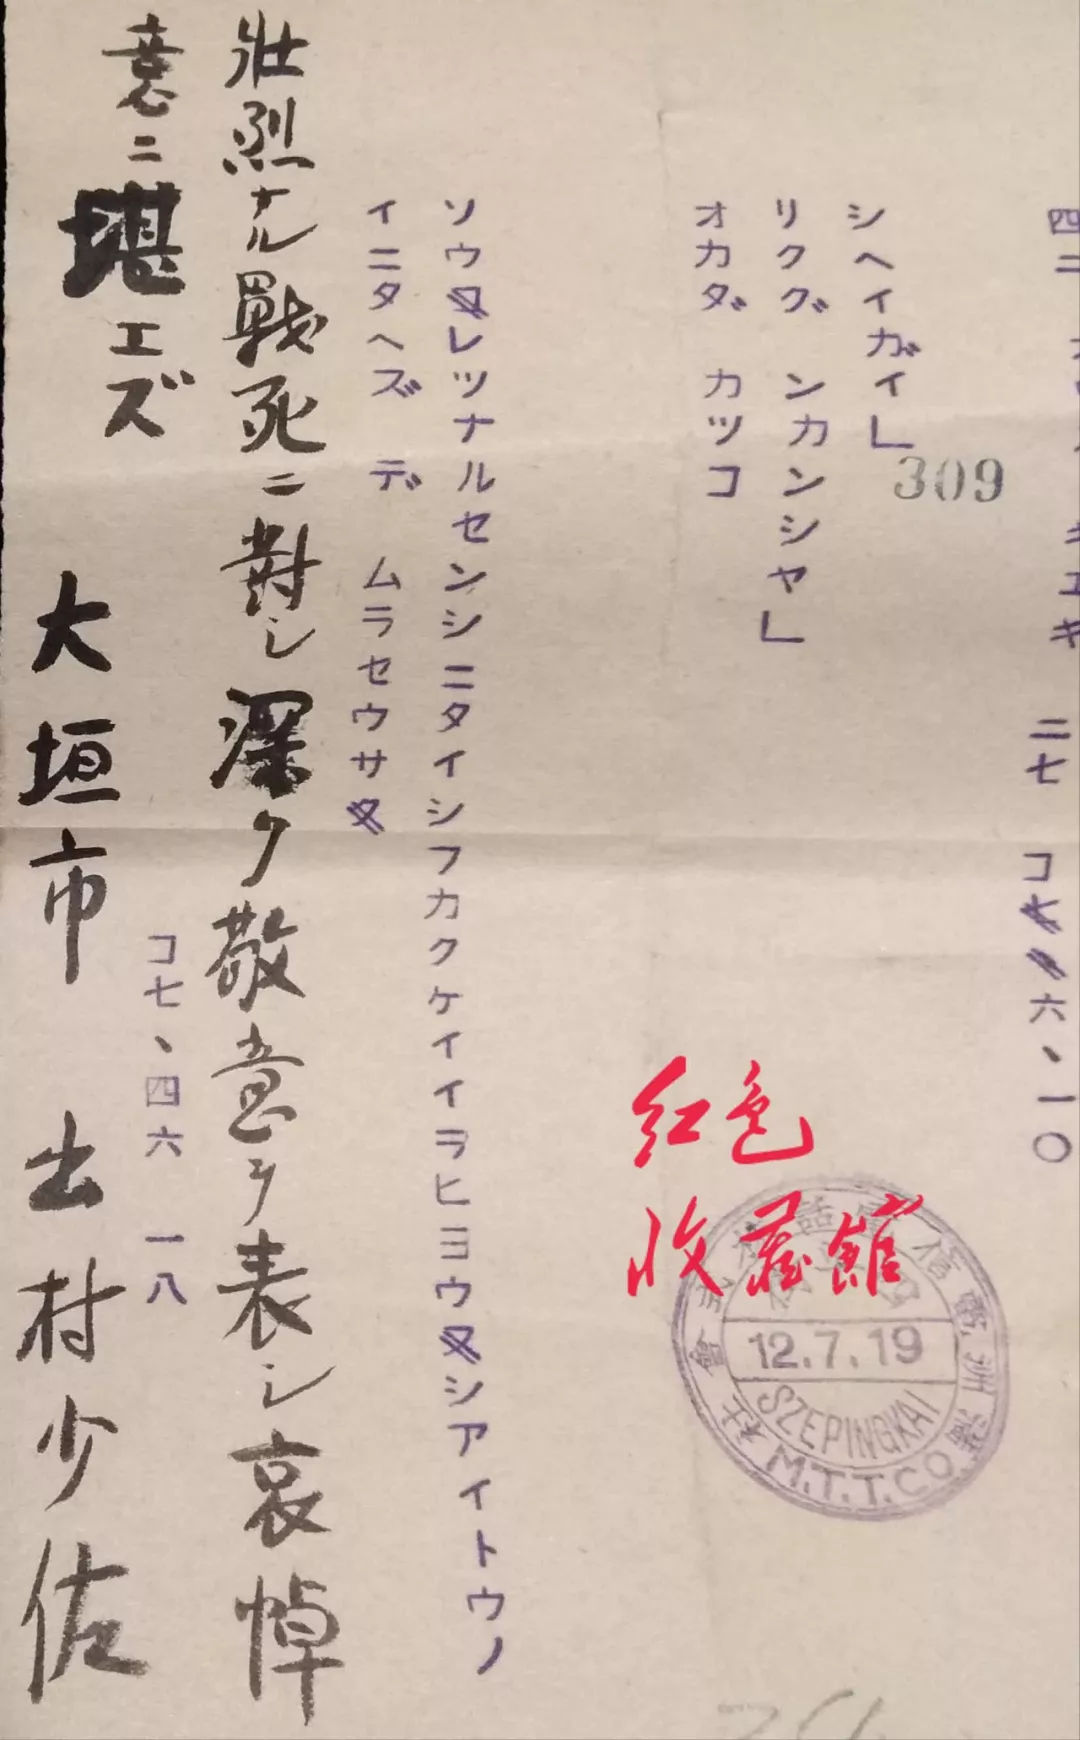 二七 コ 六、一〇
シヘイガイ」
309
リクグ ンカンシヤ」
オカダ カツコ
ソウレツナルセンシニタイシフカクケイイラヒヨウシアイトウノ
イニタヘズ デ ムラセウサ
壯烈ナル戰死ニ對シ深ク敬意ヲ表シ哀悼
意ニ堪エズ
コ七、四六 一八
大垣市 出村少佐
红色
收藏館
12.7.19
SZEPINGKAI
M.T.T.CO.